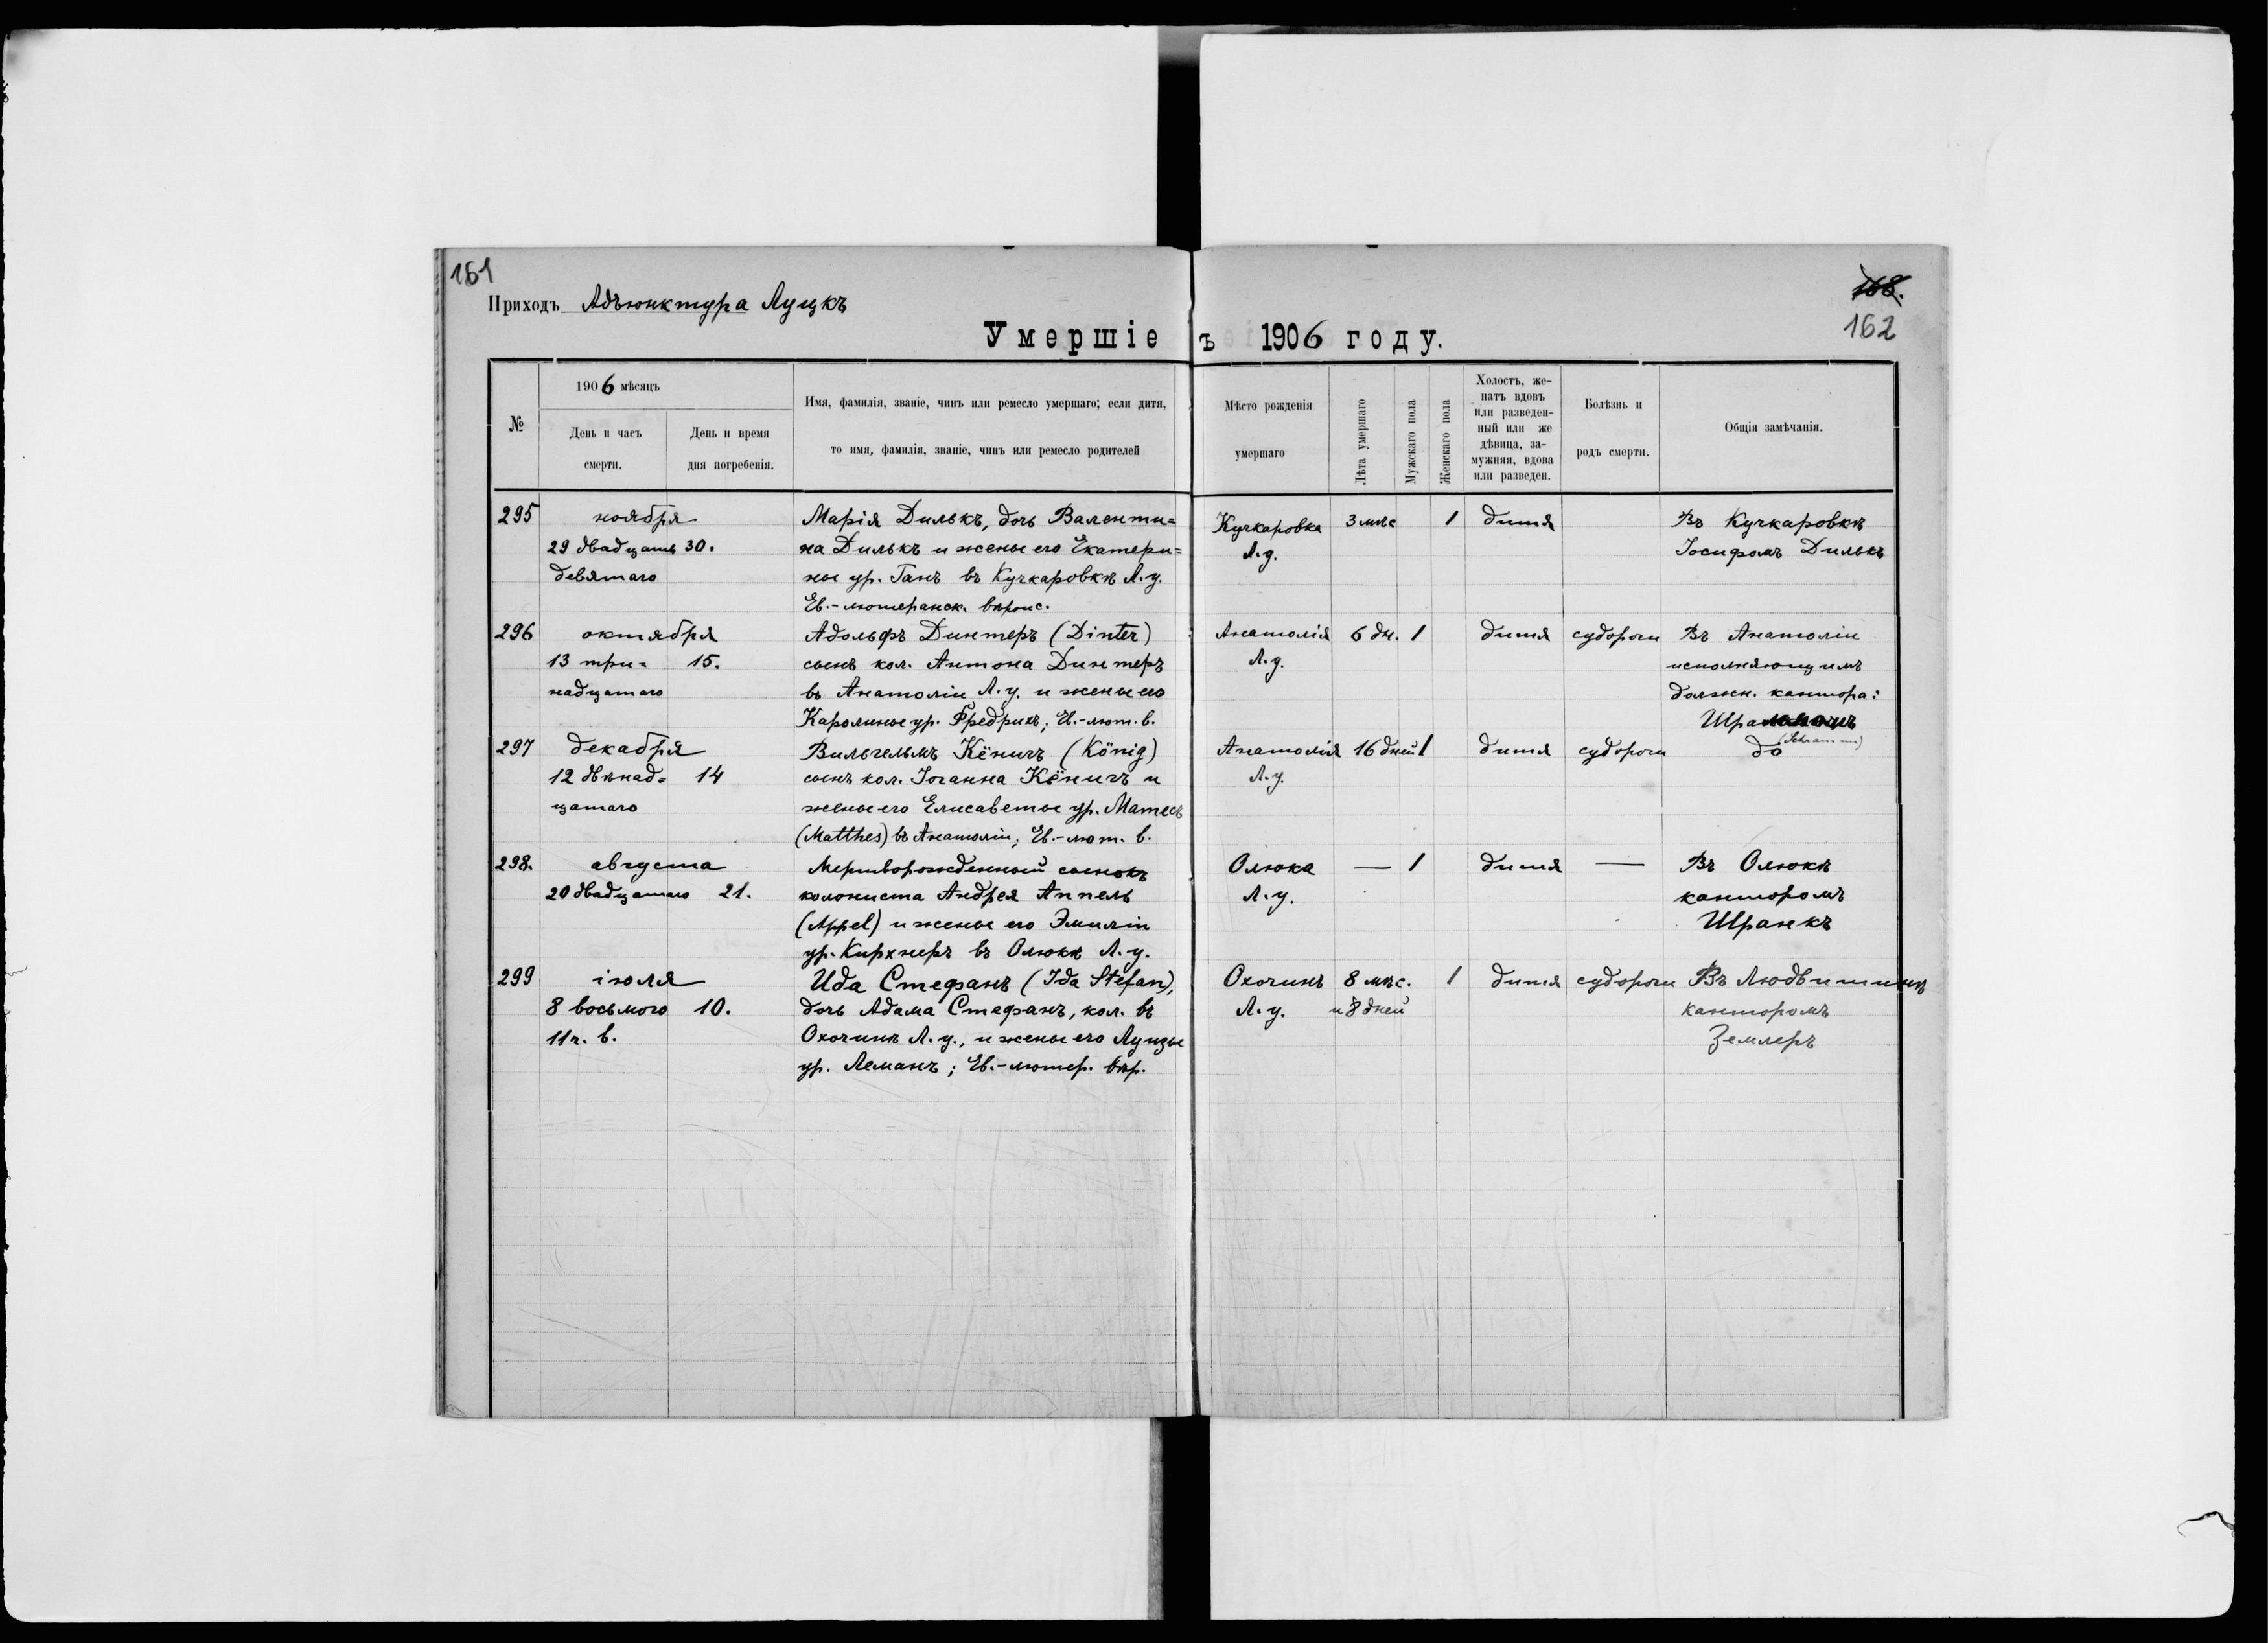 161
168.
162
Приходъ Адъюнктура Луцкъ
Умершіе ъ 1906 году.
№
1906 мѣсяцъ
День и часъ
смерти.
День и время
дня погребенія.
Имя, фамилія, званіе, чинъ или ремесло умершаго; если дитя,
то имя, фамилія, званіе, чинъ или ремесло родителей
Мѣсто рожденія
умершаго
Лѣта умершаго
Мужскаго пола
Женскаго пола
Холостъ, же-
натъ вдовъ
или разведен-
ный или же
дѣвица, за-
мужняя, вдова
или разведен.
Болѣзнь и
родъ смерти.
Общія замѣчанія.
295 ноября Марія Дилькъ, дочь Валенти= Кучкаровка 3 мѣс 1 дитя Въ Кучкаровкѣ
29 двадцать 30. на Дилькъ и жены его Екатери= Л.у. Іосифомъ Дилькъ
девятаго ны ур. Ганъ въ Кучкаровкѣ Л.у.
Ев.-лютеранск. вѣроис.
296 октября Адольфъ Динтеръ (Dinter) Анатолія 6 дн. 1 дитя судороги Въ Анатоліи
13 три= 15. сынъ кол. Антона Динтеръ Л.у. исполняющимъ
надцатаго въ Анатоліи Л.у. и жены его должн. кантора:
Каролины ур. Фредрихъ; Ев.-лют. в.
297 декабря Вильгельмъ Кёнигъ (König) Анатолія 16 дней 1 дитя судороги до (Schramm)
12 двѣнад= 14 сынъ кол. Іоганна Кёнигъ и Л.у.
цатаго жены его Елисаветы ур. Матесъ
(Matthes) въ Анатоліи; Ев.-лют. в.
298. августа Мертворожденный сынокъ Олюка — 1 дитя — Въ Олюкѣ
20 двадцатаго 21. колониста Андрея Аппель Л.у. канторомъ
(Appel) и жены его Эмиліи Шранкъ
ур. Кирхнеръ въ Олюкѣ Л.у.
299 іюля Ида Стефанъ (Ida Stefan), Охочинъ 8 мѣс. 1 дитя судороги Въ Людвишинѣ
8 восьмого 10. дочь Адама Стефанъ, кол. въ Л.у. и 8 дней канторомъ
11 ч. в. Охочинѣ Л.у., и жены его Луизы Землеръ
ур. Леманъ; Ев.-лютер. вѣр.